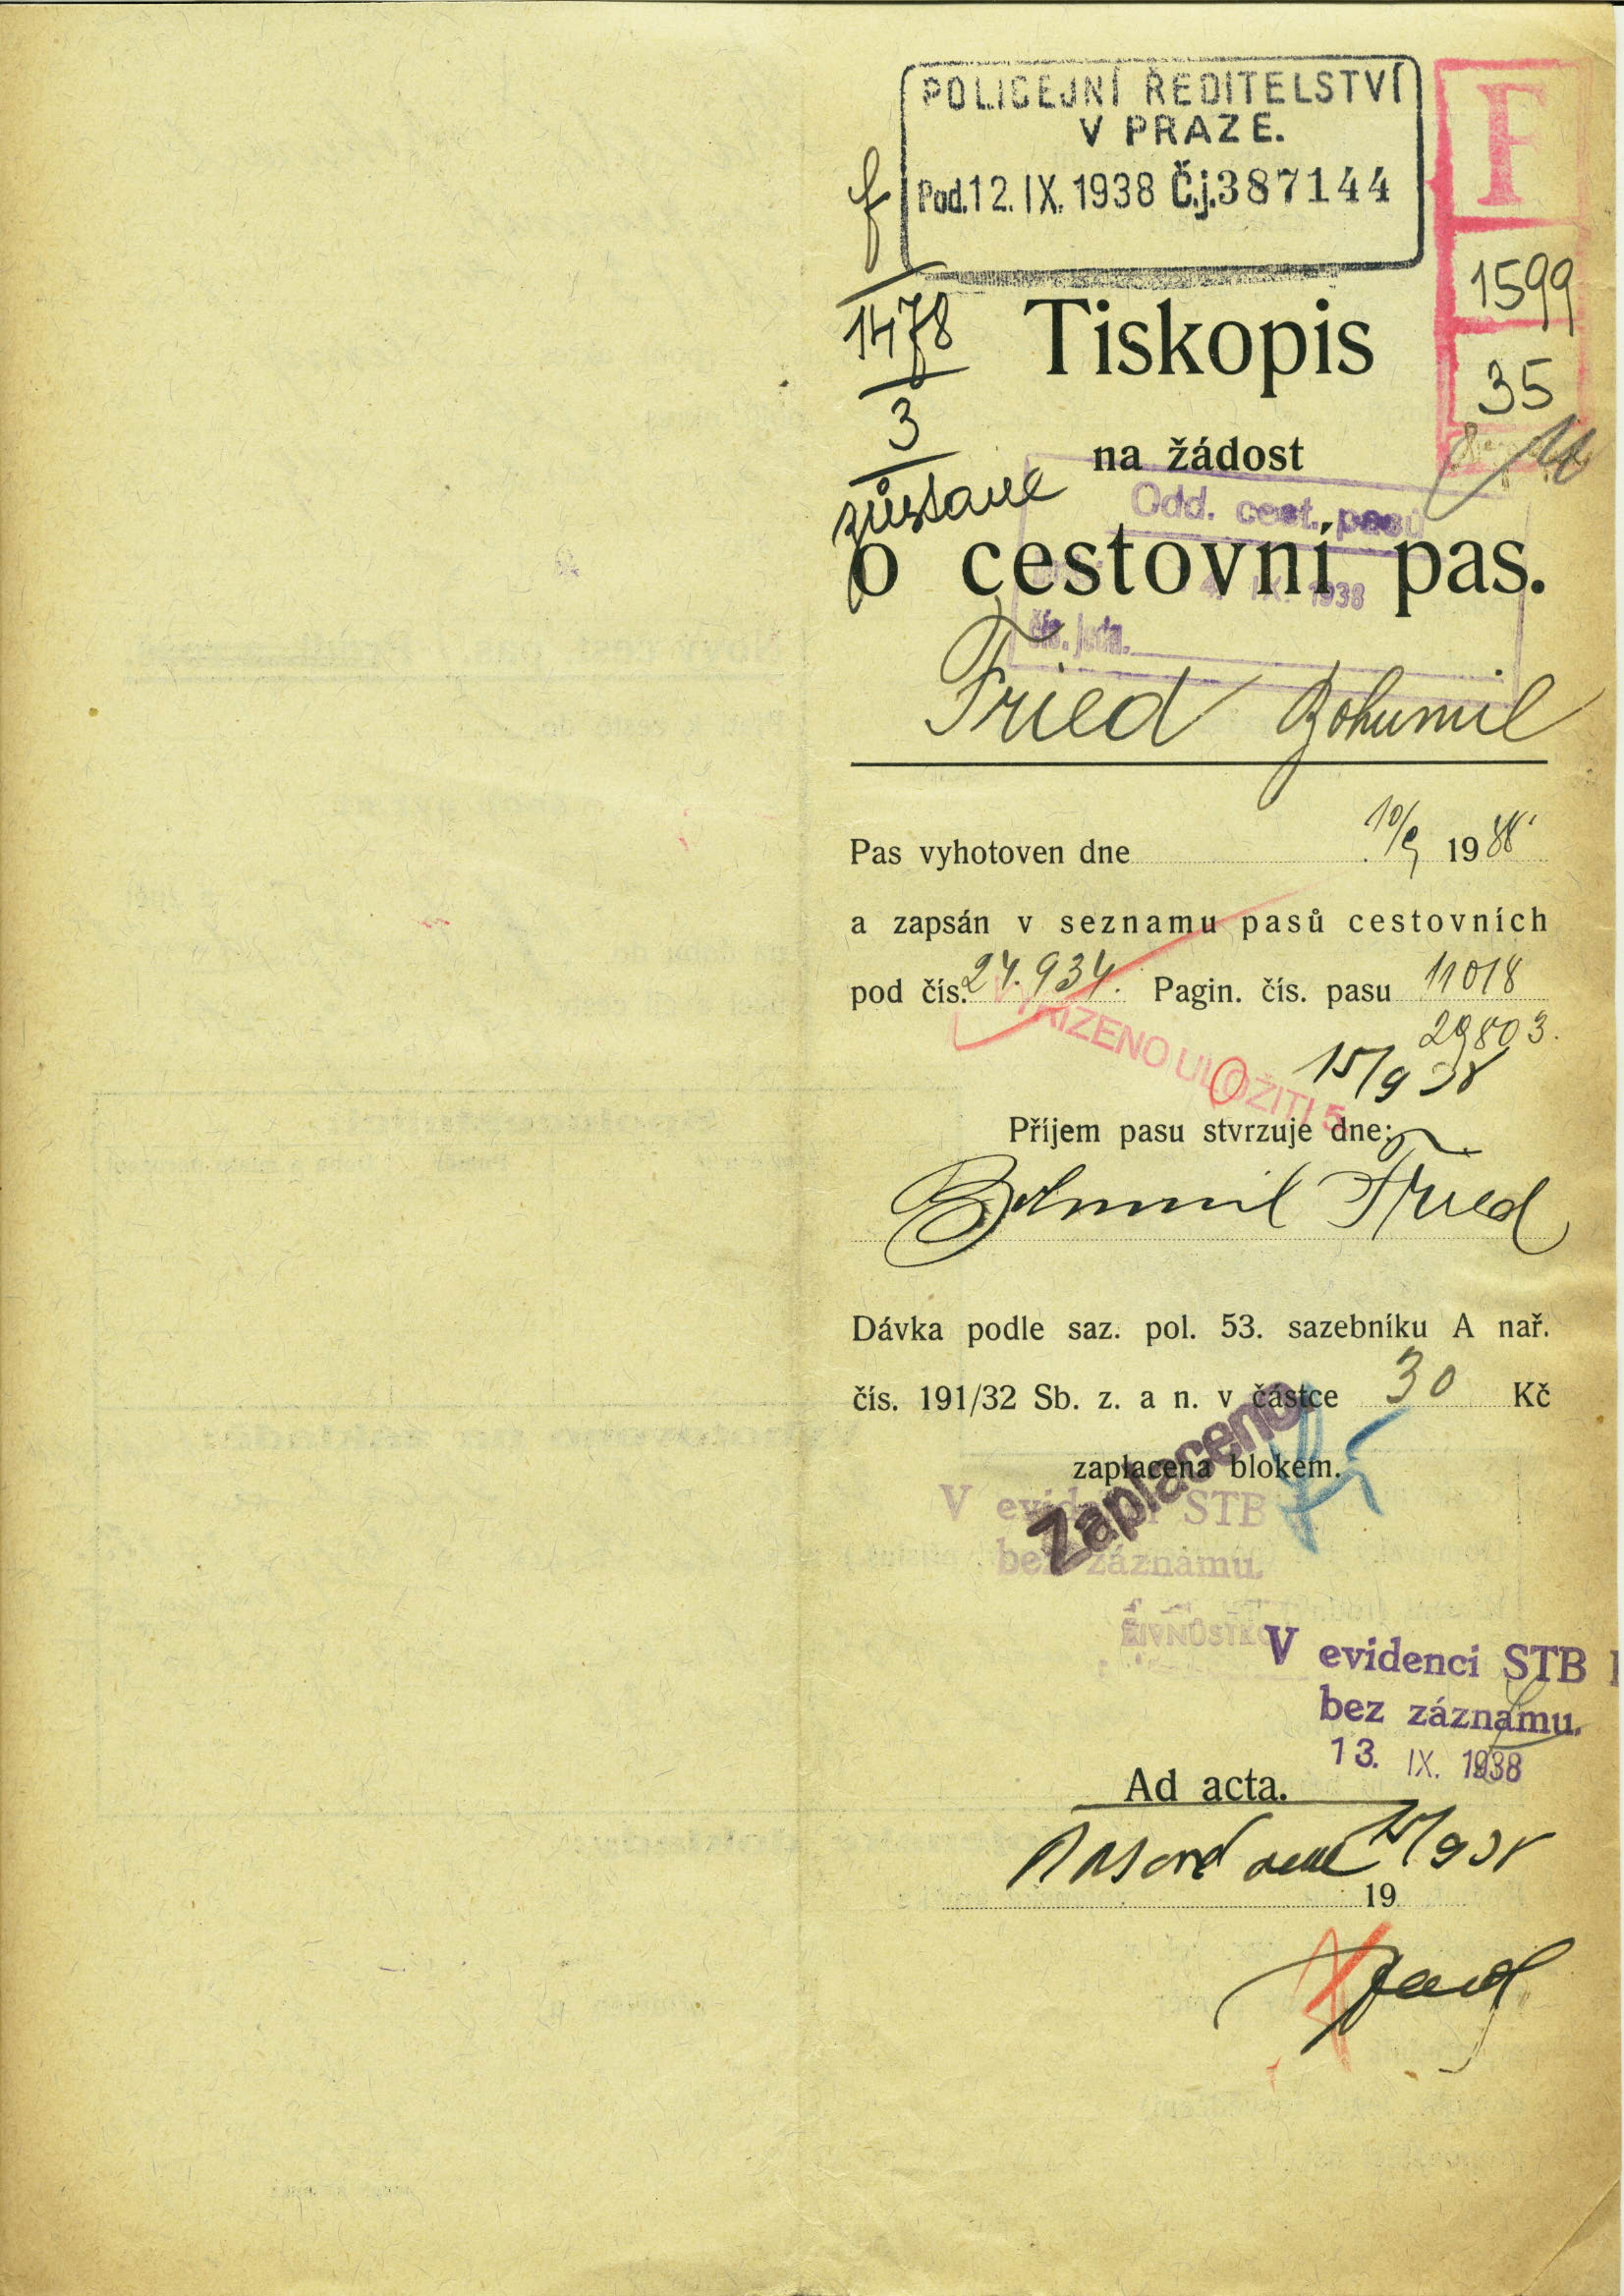 POLICEJNÍ ŘEDITELSTVÍ
V PRAZE.
Pod. 12. IX. 1938 Č.j. 387144
F
1599
35
f
1478
3
zůstane
Tiskopis
na žádost
Odd. cest. pasů
IX. 1938
čís. jedn.
o cestovní pas.
Fried Bohumil
Pas vyhotoven dne 19
a zapsán v seznamu pasů cestovních
pod čís. 24.934. Pagin. čís. pasu 11018
29803.
VYŘÍZENO ULOŽITI 5
15/9 38
Příjem pasu stvrzuje dne:
Bohumil Fried
Dávka podle saz. pol. 53. sazebníku A nař.
čís. 191/32 Sb. z. a n. v částce 30 Kč
zaplacena blokem.
Zaplaceno
V evidenci STB
bez záznamu.
V evidenci STB
bez záznamu.
13. IX. 1938
Ad acta.
19